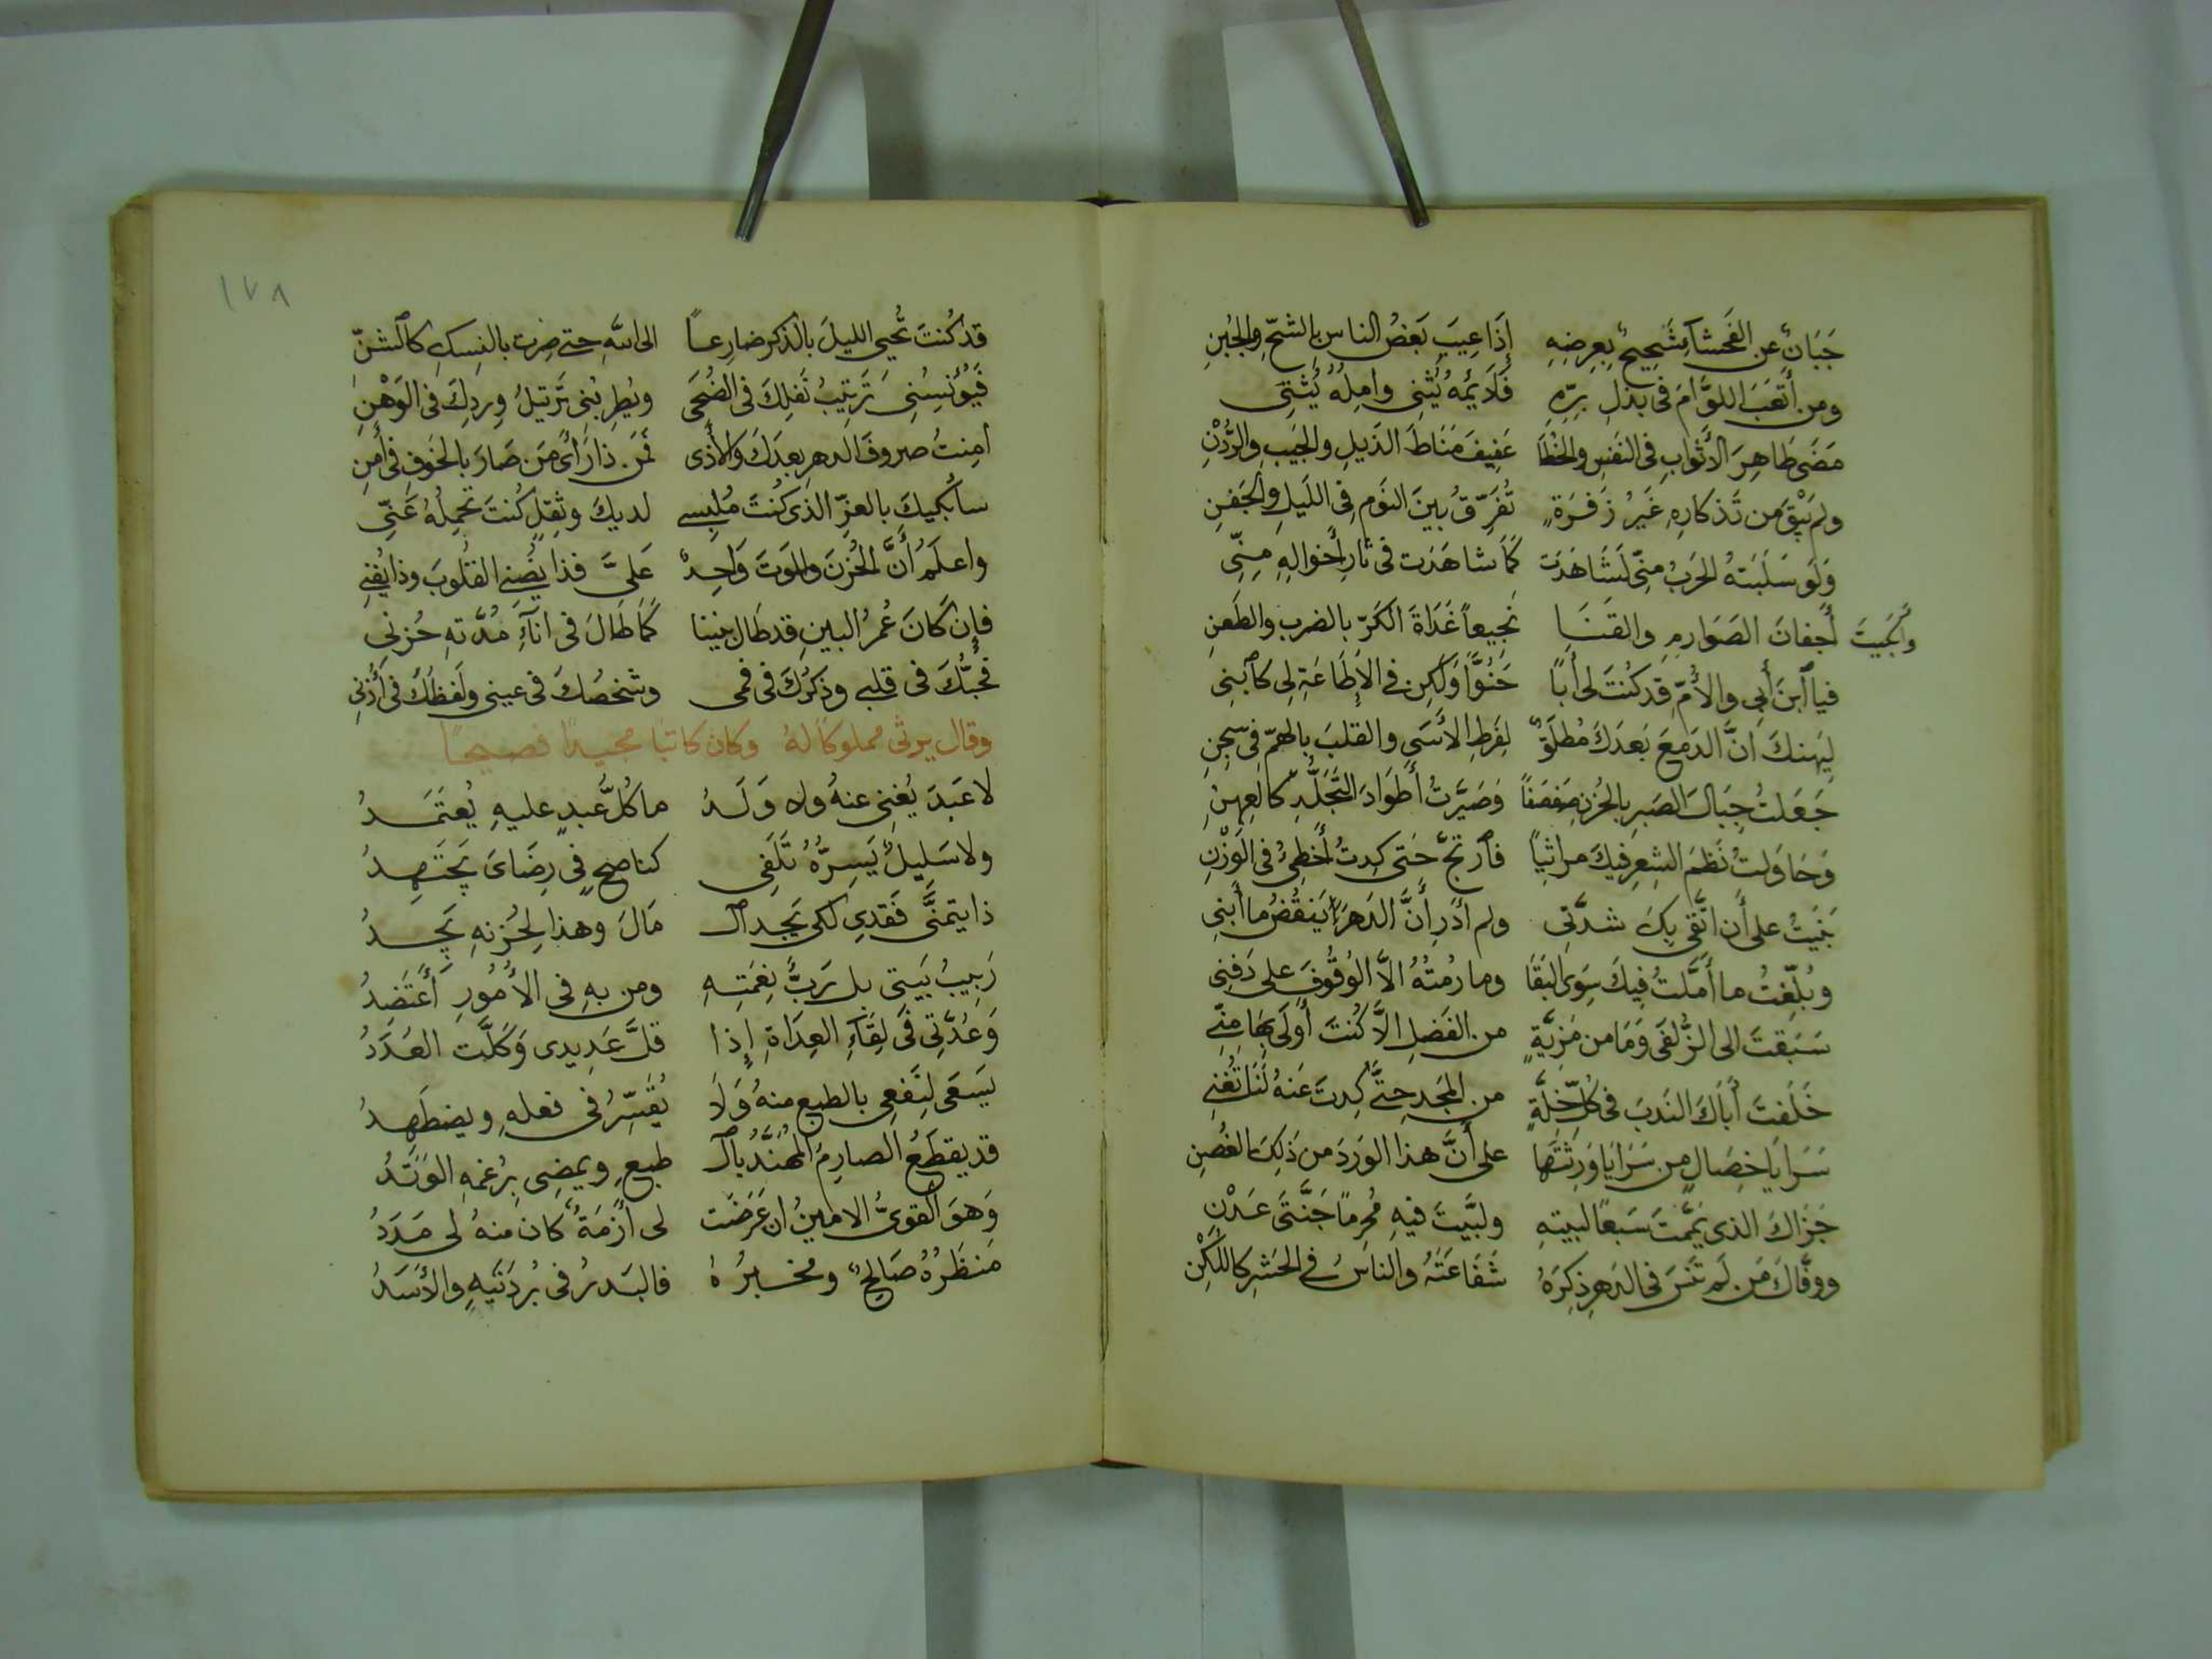 جَبَانٌ عن الفَحشآءِ شَحِيحٌ بِعِرضِهِ إِذَا عِيبَ بَعَضُ الناسِ بالشحِّ والجُبنِ
ومن أَتعَبَ اللوَّامَ في بَذلِ بِرِّهِ فَلَايمُهُ يُثنِي وامِلُهُ يُثنِى
مَضَى طَاهِرَ الأَثوابِ في النَفسِ والخُطَا عَفِيفَ مَنَاطَ الذَيلِ والجَيبِ والرُّدْنِ
ولم يَبْقَ من تَذكارِهِ غَيرُ زَفرَةٍ تُفَرِّقُ بينَ النَومِ في اللَيلِ والجَفنِ
وَلَو سَلَبَتهُ الحَربُ مِنّي لَشَاهَدَت كَمَا شاهَدَت في ثارِ أخوالِهِ مِنِّي
وأَبكَيتَ أَجفانَ الصَوَارِمِ والقَنَا نَجِيعاً غَدَاةَ الكَرِّ بالضربِ والطَعنِ
فيا ٱبنَ أَبي والأُمِّ قد كُنتَ لي أَباً حُنُوّاً وَلَكِن في الإِطَاعَةِ لِي كٱبنِي
لِيَهنكَ انَّ الدَمعَ بَعدَكَ مُطلَقٌ لِفَرطِ الأَسَى والقلبَ بالهمّ في سِجنِ
جَعَلتُ جِبَالَ الصَبرِ بالحُزنِ صَفصَفاً وَصَيَّرتُ أطوَادَ التَجَلُّدِ كالعِهنِ
وَحَاوَلتُ نَظمَ الشِعرِ فيكَ مراثياً فٱرتجَّ حَتى كِدتُ أُخطِئُ في الوَزْنِ
بَنَيتُ على أَن اتَّقى بِكَ شدَّتى ولم أدرِ أَنَّ الدَهرَ يَنقُضُ ما أَبنِي
وبُلِّغتُ ما أَمَّلتُ فِيكَ سِوَى البَقَا وما رُمتُهُ الاَّ الوُقُوفَ على دَفنِي
سَبَقتَ الى الزُّلفَى وَمَا من مَزِيَّةٍ من الفَضلِ الاَّ كُنتَ أَولَى بِهَا مِنّي
خَلَفتَ أَبَاكَ النَدبَ في كُلِّ خِلَّةٍ من المَجدِ حتَّى كِدتَ عَنهُ لَنَا تُغنِي
سَرَايَا خِصَالٍ من سَرَايَا وَرِثتَهَا على أَنَّ هذا الوَردَ من ذَلِكَ الغُصنِ
جَزَاكَ الذي يَمَّمتَ سَبعًا لبيتِهِ ولبَّيتَ فيهِ مُحرِمًا جَنَّتَى عَدْنٍ
ووفَّاكَ مَن لَم تَنسَ في الدَهرِ ذِكرَهُ شَفَاعَتَهُ والناسُ في الحَشرِ كاللُكْنِ
١٧٨
قد كُنتَ تُحيِي الليلَ بالذكر ضارِعاً الى اللهِ حتى صِرت بالنسكِ كالشنّ
فَيُوُنسُنِي تَرتِيبُ نَفلِكَ في الضُحَى ويُطرِبُنِي تَرتيلُ وِردِكَ في الوَهْنِ
امِنتُ صروفَ الدهرِ بعدَكَ والأَذى فمَن ذا رَأى مَن صَارَ بالخَوفِ في أَمنِ
سأَبكيكَ بالعزِّ الذي كُنتَ مُلبِسي لديكَ وثِقلٍ كُنتَ تحمِلُهُ عَنِّي
واعلَمُ أَنَّ الحُزنَ والمَوتَ وَاحِدٌ عَلَيَّ فذا يُضنِي القُلُوبَ وذا يُفنِي
فإِن كَانَ عُمرُ البينِ قد طَال بيننا كَمَا طَالَ في انآءِ مُدَّتهِ حُزنِي
فَحُبُّكَ في قلبي وذكرُكَ في فمي وشخصُكَ في عيني ولَفظُكَ في أُذنِي
وقال يرثى مملوكًا لهُ وكان كاتبًا مجيدًا فصيحًا
لا عَبدَ يُغنِي عنهُ ولا وَلَدُ ما كُلُّ عَبدٍ عليهِ يُعتَمَدُ
ولا سَلِيلٌ يَسِرُّهُ تَلَفِي كناصحٍ في رِضَايَ يَجتَهِدُ
ذا يتمنَّى فَقدِي لكي يَجِد ٱل مَالَ وهذا لِحُزنهِ يَجِدُ
رَبِيبُ بَيتي بل رَبَّ نِعمَتِهِ ومن بهِ في الأُمُورِ أَعتَضدُ
وَعُدَّتِي في لِقَآءِ العِدَاةِ إِذا قلَّ عَدِيدي وَكَلَّت العُدَدُ
يَسعَى لِنَفعِي بالطبعِ منهُ وَلاَ يُقَسِّرُ في فعلهِ ويضطَهِدُ
قد يقطَعُ الصارِمُ المُهنَّدُ بٱل طبعِ ويمضِي بِرُغمِهِ الوَتَدُ
وَهوَ القويُّ الامينُ ان عَرَضَت لي أَزمَةٌ كان منهُ لي مَدَدُ
مَنظَرُهُ صَالِحٌ ومخبرُهُ فالبَدرُ في بُردَتَيهِ والأَسَدُ